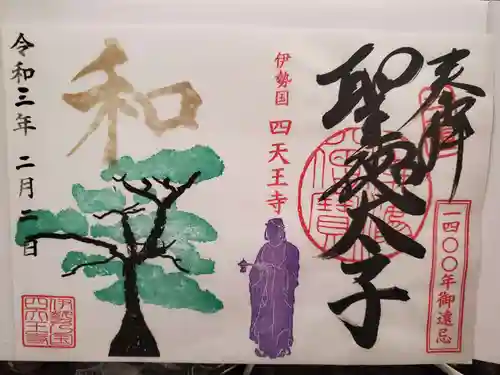 奉拝
聖徳太子
一四〇〇年御遠忌
伊勢国 四天王寺
和
令和三年 二月二日